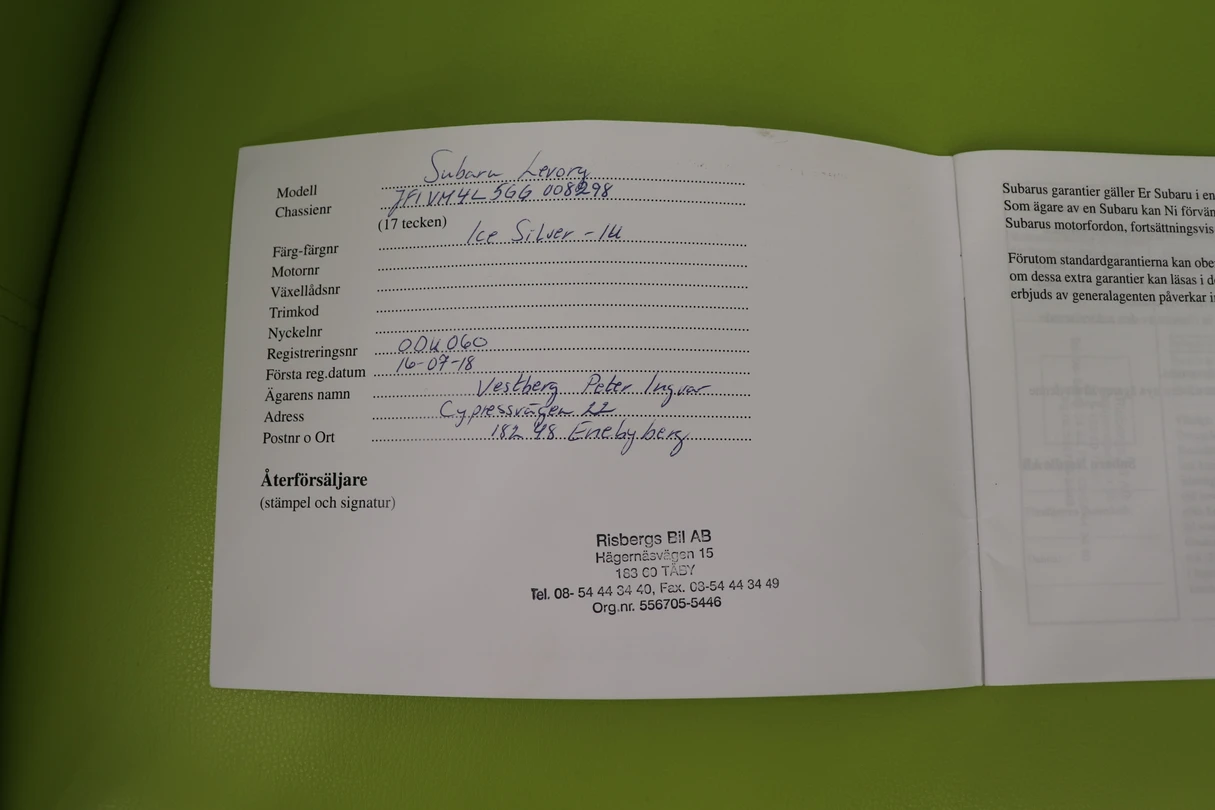 Modell Subaru Levorg
Chassienr JF1VM4L5GG 008298
(17 tecken)
Färg-färgnr Ice Silver -1U
Motornr
Växellådsnr
Trimkod
Nyckelnr
Registreringsnr OOU060
Första reg.datum 16-07-18
Ägarens namn Vestberg Peter Ingvar
Adress Cypressvägen 22
Postnr o Ort 182 48 Enebyberg
Återförsäljare
(stämpel och signatur)
Risbergs Bil AB
Hägernäsvägen 15
183 60 TÄBY
Tel. 08- 54 44 34 40, Fax. 08-54 44 34 49
Org.nr. 556705-5446
Subarus garantier gäller Er Subaru i en
Som ägare av en Subaru kan Ni förvän
Subarus motorfordon, fortsättningsvis
Förutom standardgarantierna kan obe
om dessa extra garantier kan läsas i d
erbjuds av generalagenten påverkar i